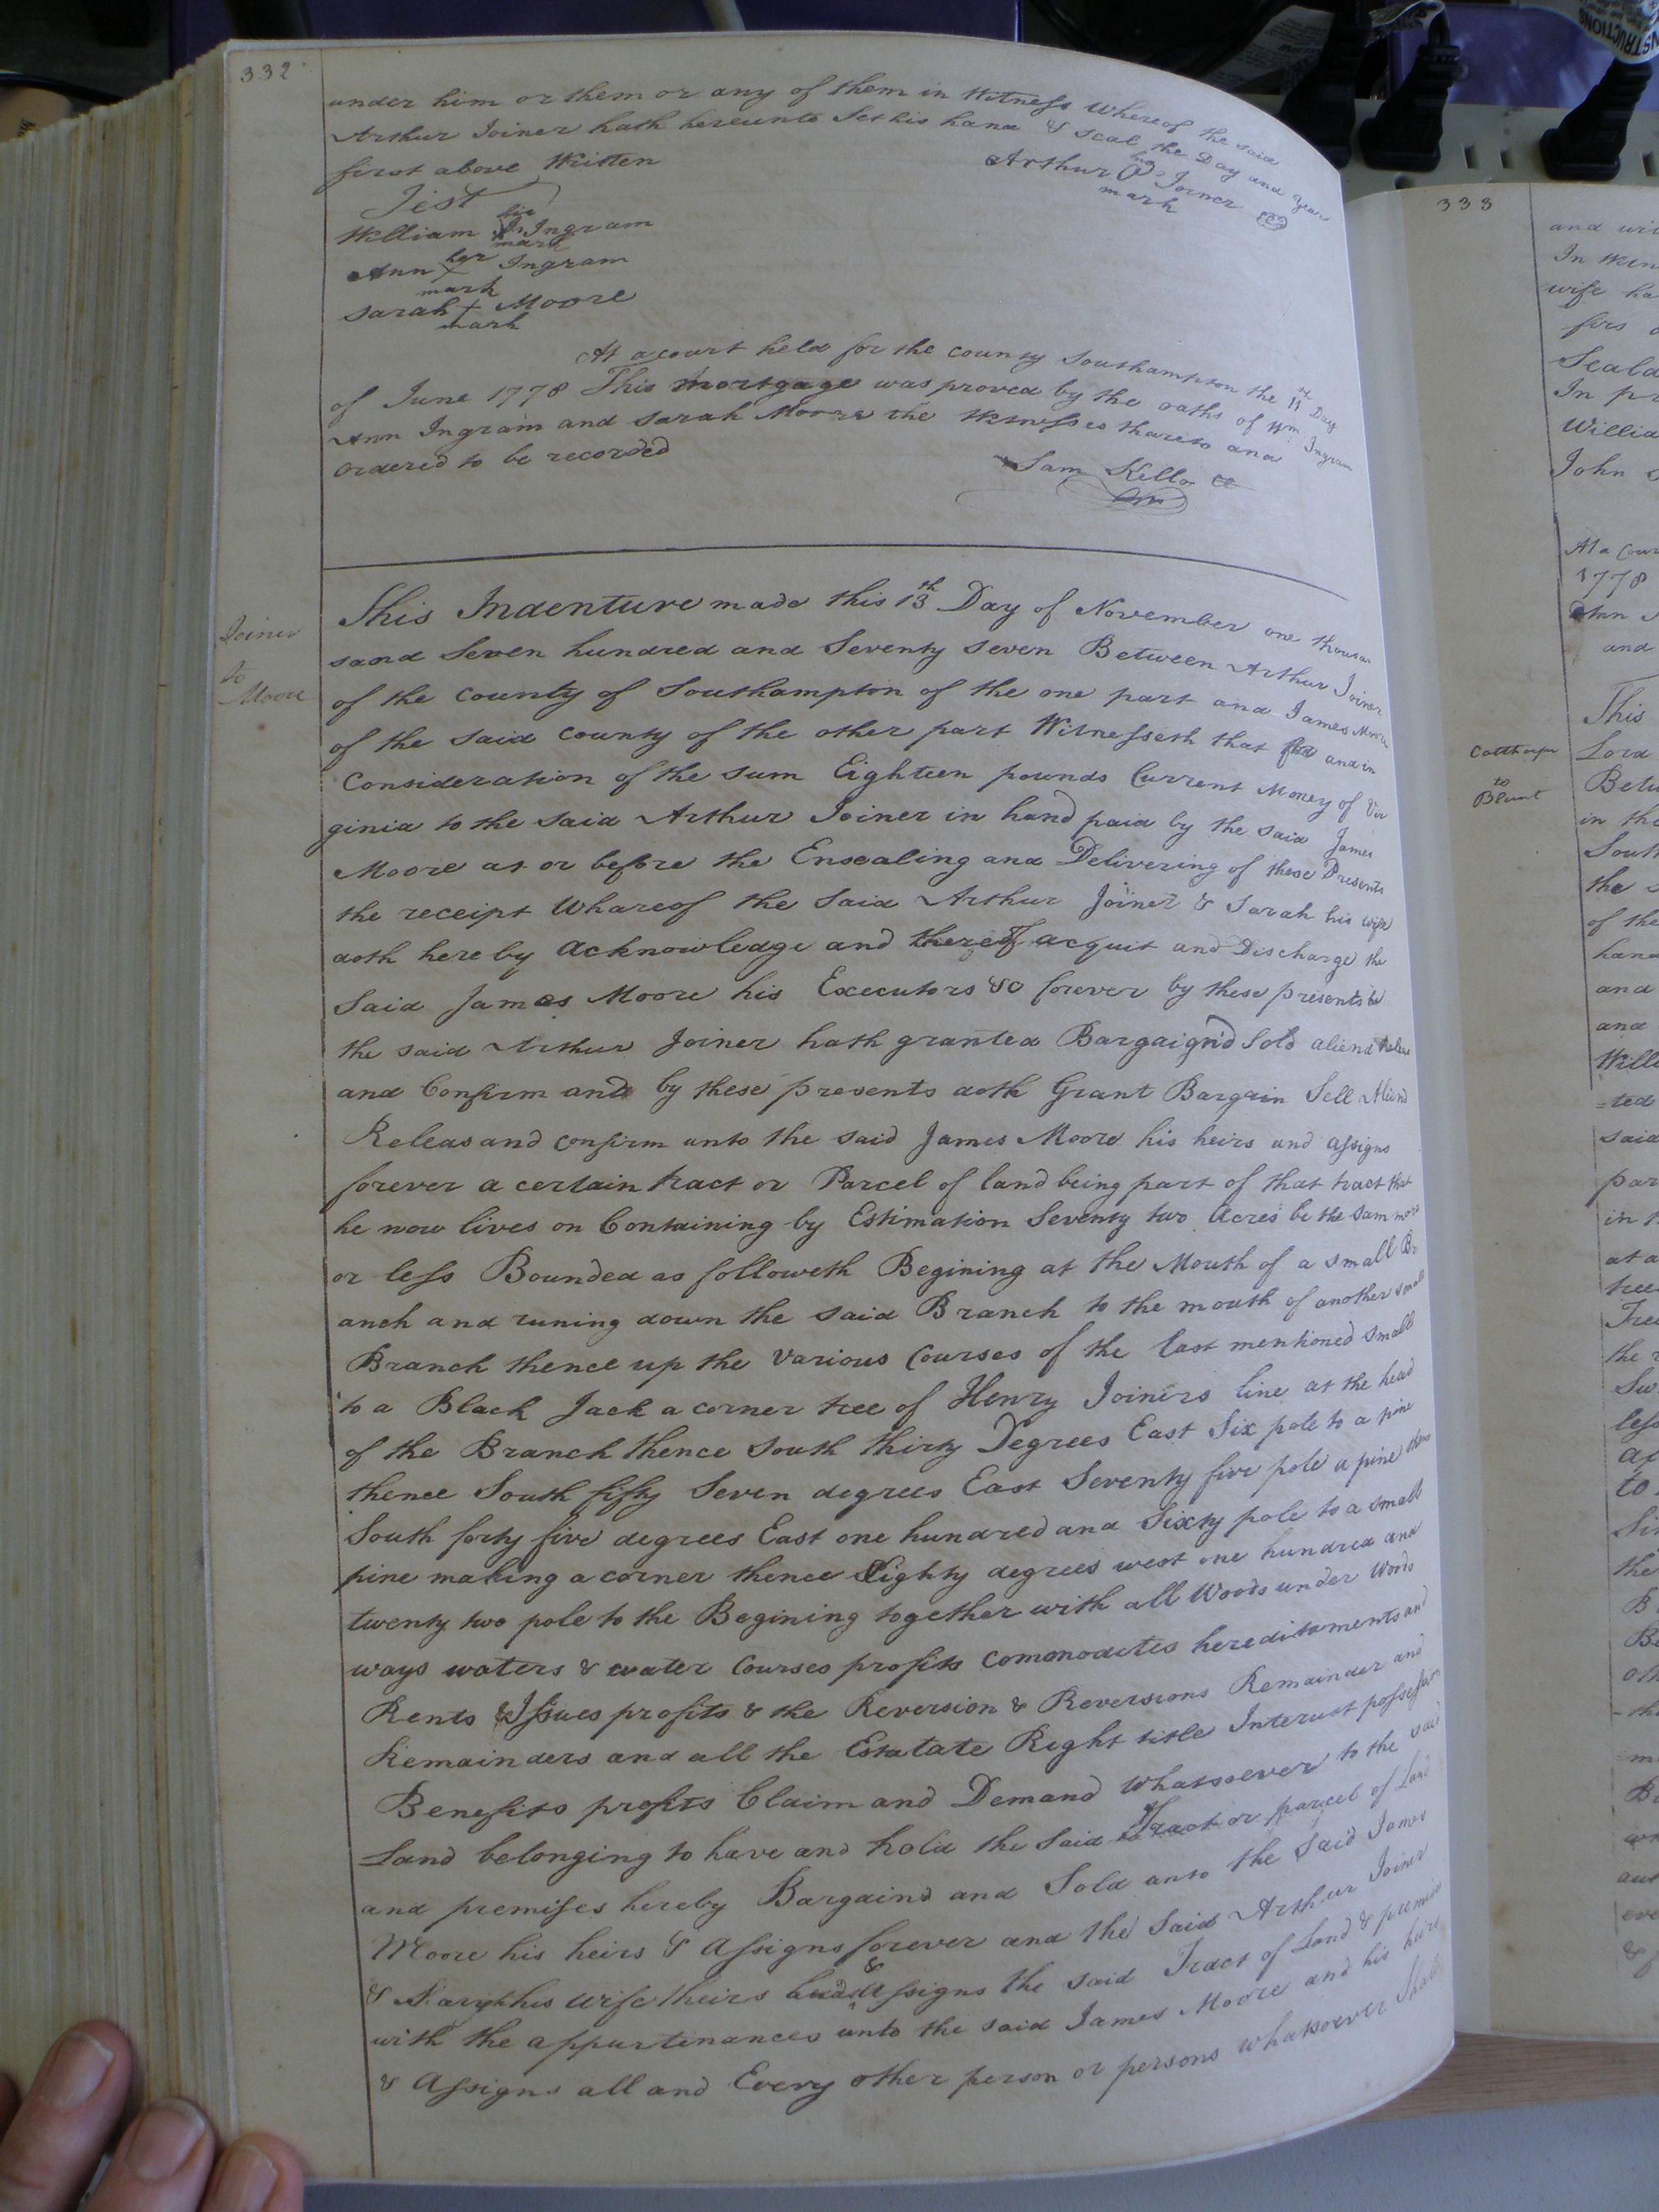 332
under him or them or any of them in Witness Whereof the said
Arthur Joiner hath hereunto Set his hand & seal the Day and year
first above Written
Arthur his Joiner
mark
Test
William his Ingram
mark
Ann her x Ingram
mark
Sarah + Moore
mark
At a court held for the county Southampton the 11th Day
of June 1778 This mortgage was proved by the oaths of Wm. Ingram
Ann Ingram and Sarah Moore the Witnesses thareto and
ordered to be recorded
Sam Kello
Joiner
to
Moore
This Indenture made this 13th Day of November one thousan
sand Seven hundred and Seventy seven Between Arthur Joiner
of the county of Southampton of the one part and James Moore
of the said county of the other part Witnesseth that for and in
Consideration of the sum Eighteen pounds Current Money of Vir
ginia to the said Arthur Joiner in hand paid by the said James
Moore at or before the Ensealing and Delivering of these Presents
the receipt Whareof the said Arthur Joiner & Sarah his wife
doth here by acknowledge and thereof acquit and Discharge the
Said James Moore his Executors &c forever by these presents he
the said Arthur Joiner hath granted Bargaign'd Sold aliend Releas
and Confirm and by these presents doth Grant Bargain Sell Aliend
Releas and confirm unto the said James Moore his heirs and assigns
forever a certain tract or Parcel of land being part of that tract that
he now lives on Containing by Estimation Seventy two Acres be the sam more
or less Bounded as followeth Begining at the Mouth of a small Br
anch and runing down the said Branch to the mouth of another small
Branch thence up the various Courses of the last mentioned small
to a Black Jack a corner tree of Henry Joiners line at the head
of the Branch thence South thirty Degrees East Six pole to a pine
thence South fifty Seven degrees East Seventy five pole a pine thence
South forty five degrees East one hundred and Sixty pole to a small
pine making a corner thence Eighty degrees west one hundred and
twenty two pole to the Begining together with all Woods under Woods
ways waters & water Courses profits commodites hereditaments and
Rents & Issues profits & the Reversion & Reversions Remainder and
Remainders and all the Estatate Right title Interust possession
Benefits profits Claim and Demand whatsoever to the said
Land belonging to have and hold the said Tract or parcel of Land
and premises hereby Bargaind and Sold unto the said James
Moore his heirs & Assigns forever and the said Arthur Joiner
& his wife theirs & assigns the said Tract of Land & premises
with the appurtenances unto the said James Moore and his heirs
& Assigns all and Every other person or persons whatsoever Shall
333
and
In
wife ha
firs
Seald
In pr
Willia
John
At a Cour
1778
Ann
and
to
Blunt
This
Lord
Betw
in the
South
the
of the
hand
and
and
Will
=ted
said
par
in
at a
tree
the
less
to
the